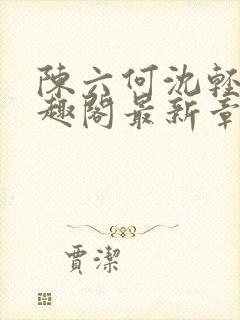 陳六何沈輕
趣閣最新章
賈潔